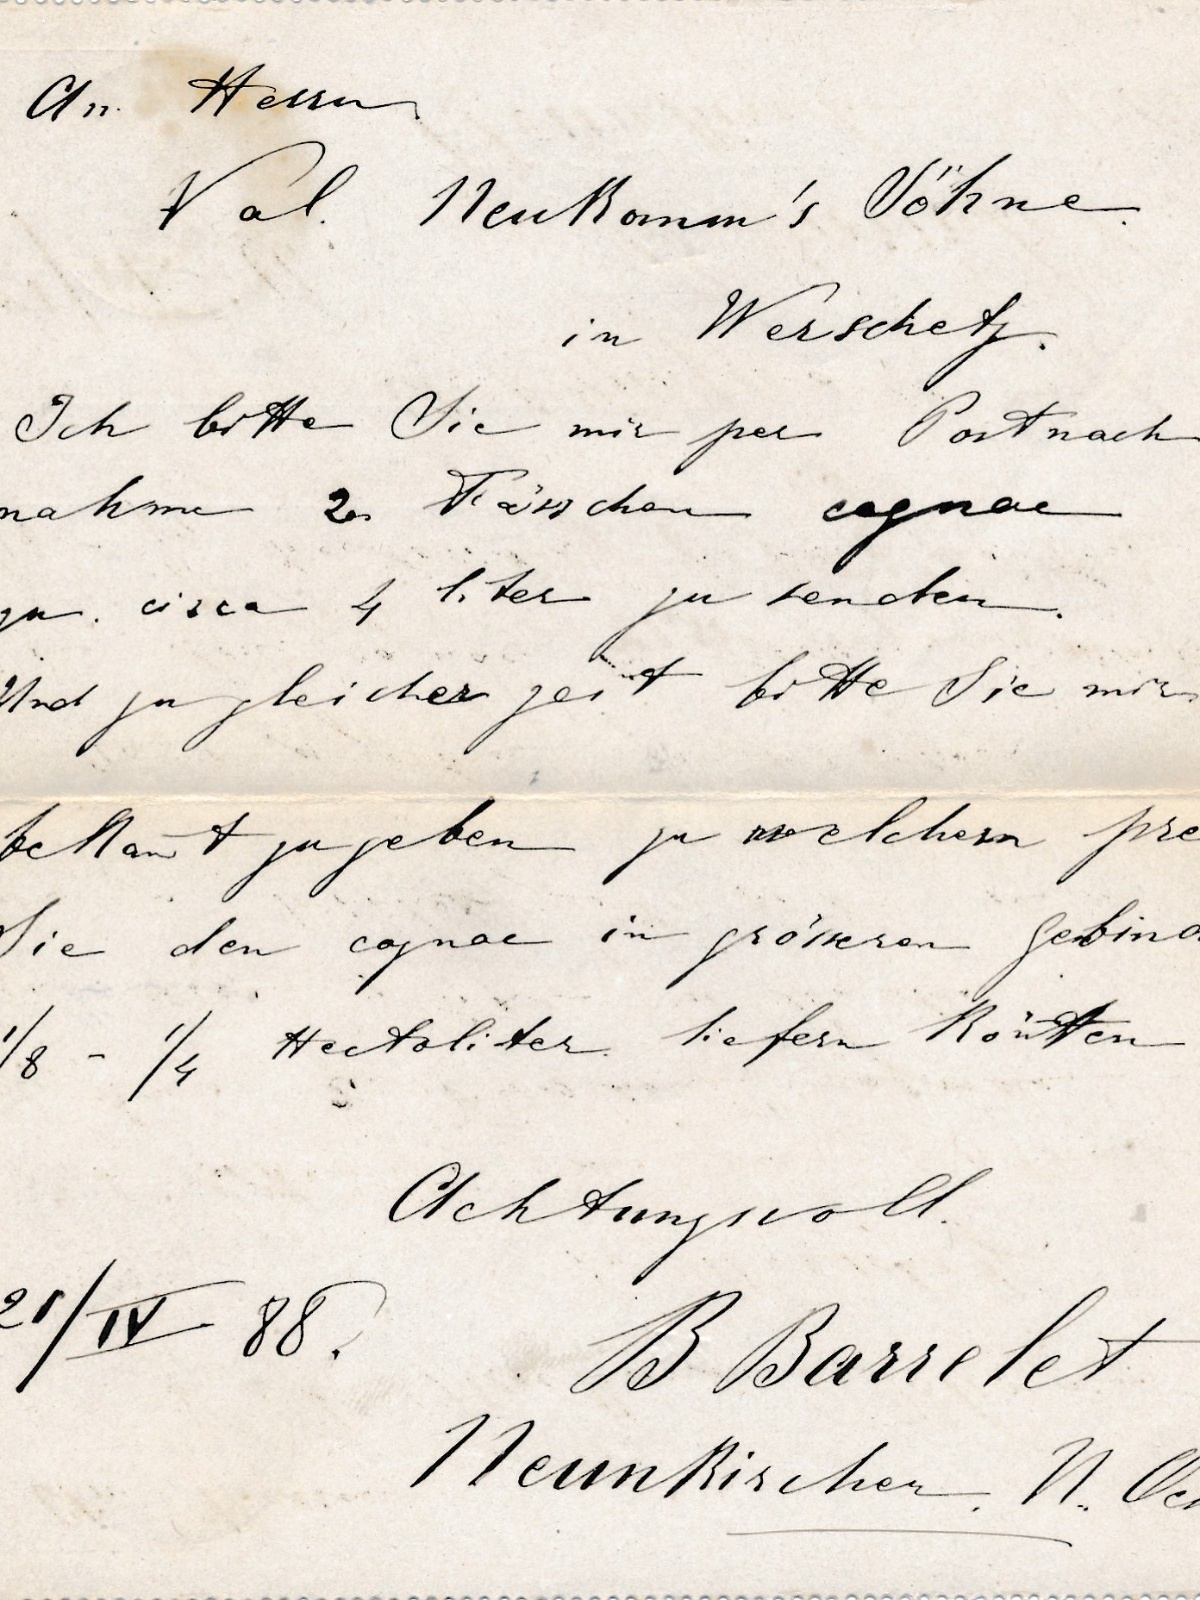 An Herrn
Val. Neukomm's Söhne.
in Werschetz.
Ich bitte Sie mir per Postnach
nahme 2 Fässchen cognac
zu circa 4 liter zu senden.
Und zu gleicher zeit bitte Sie mir
bekan̄t zu geben zu welchem pre
Sie den cognac in grösseren gebind
1/8 - 1/4 Hectoliter liefern kön̄ten
Achtungsvoll.
21/IV 88.
B Barrelet
Neunkirchen. N. Oes